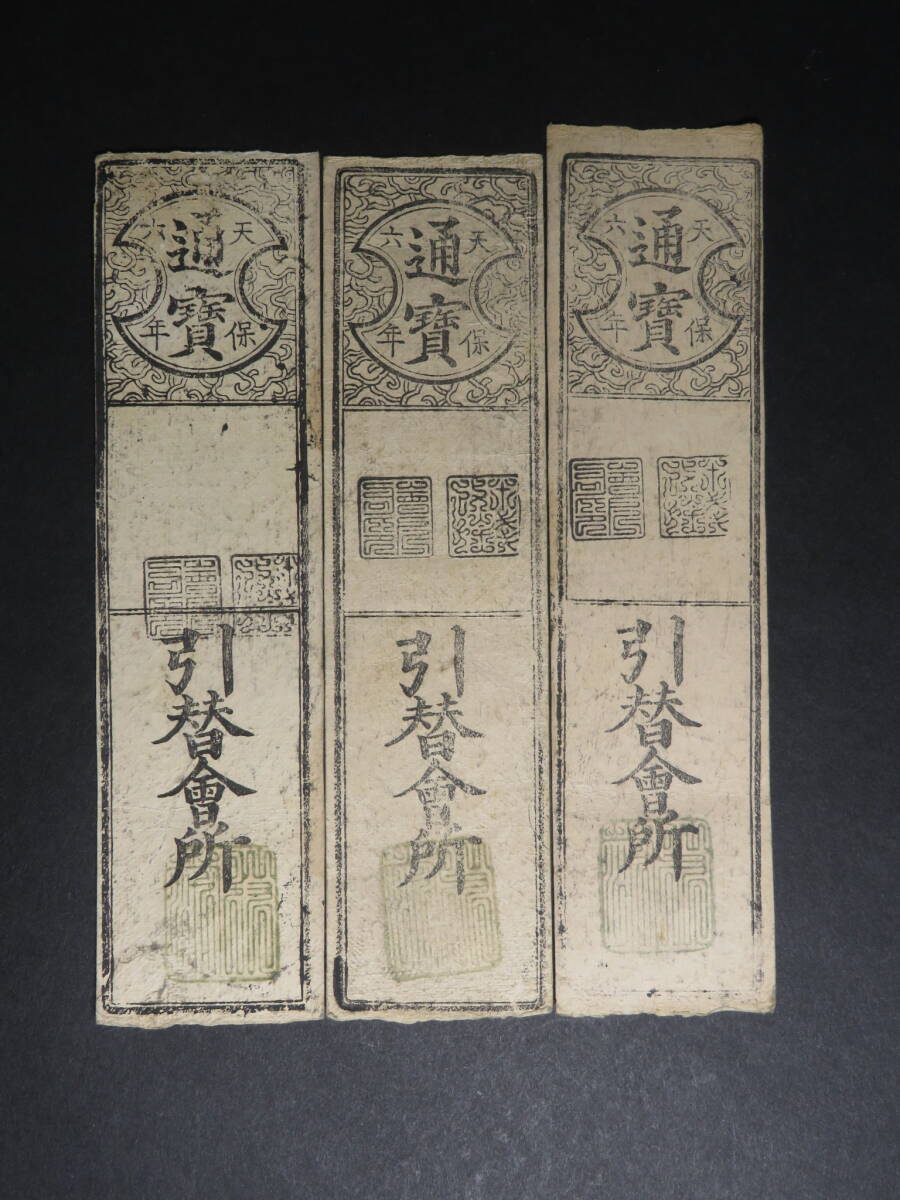 通寶
天保
六年
引替會所
通寶
天保
六年
引替會所
通寶
天保
六年
引替會所